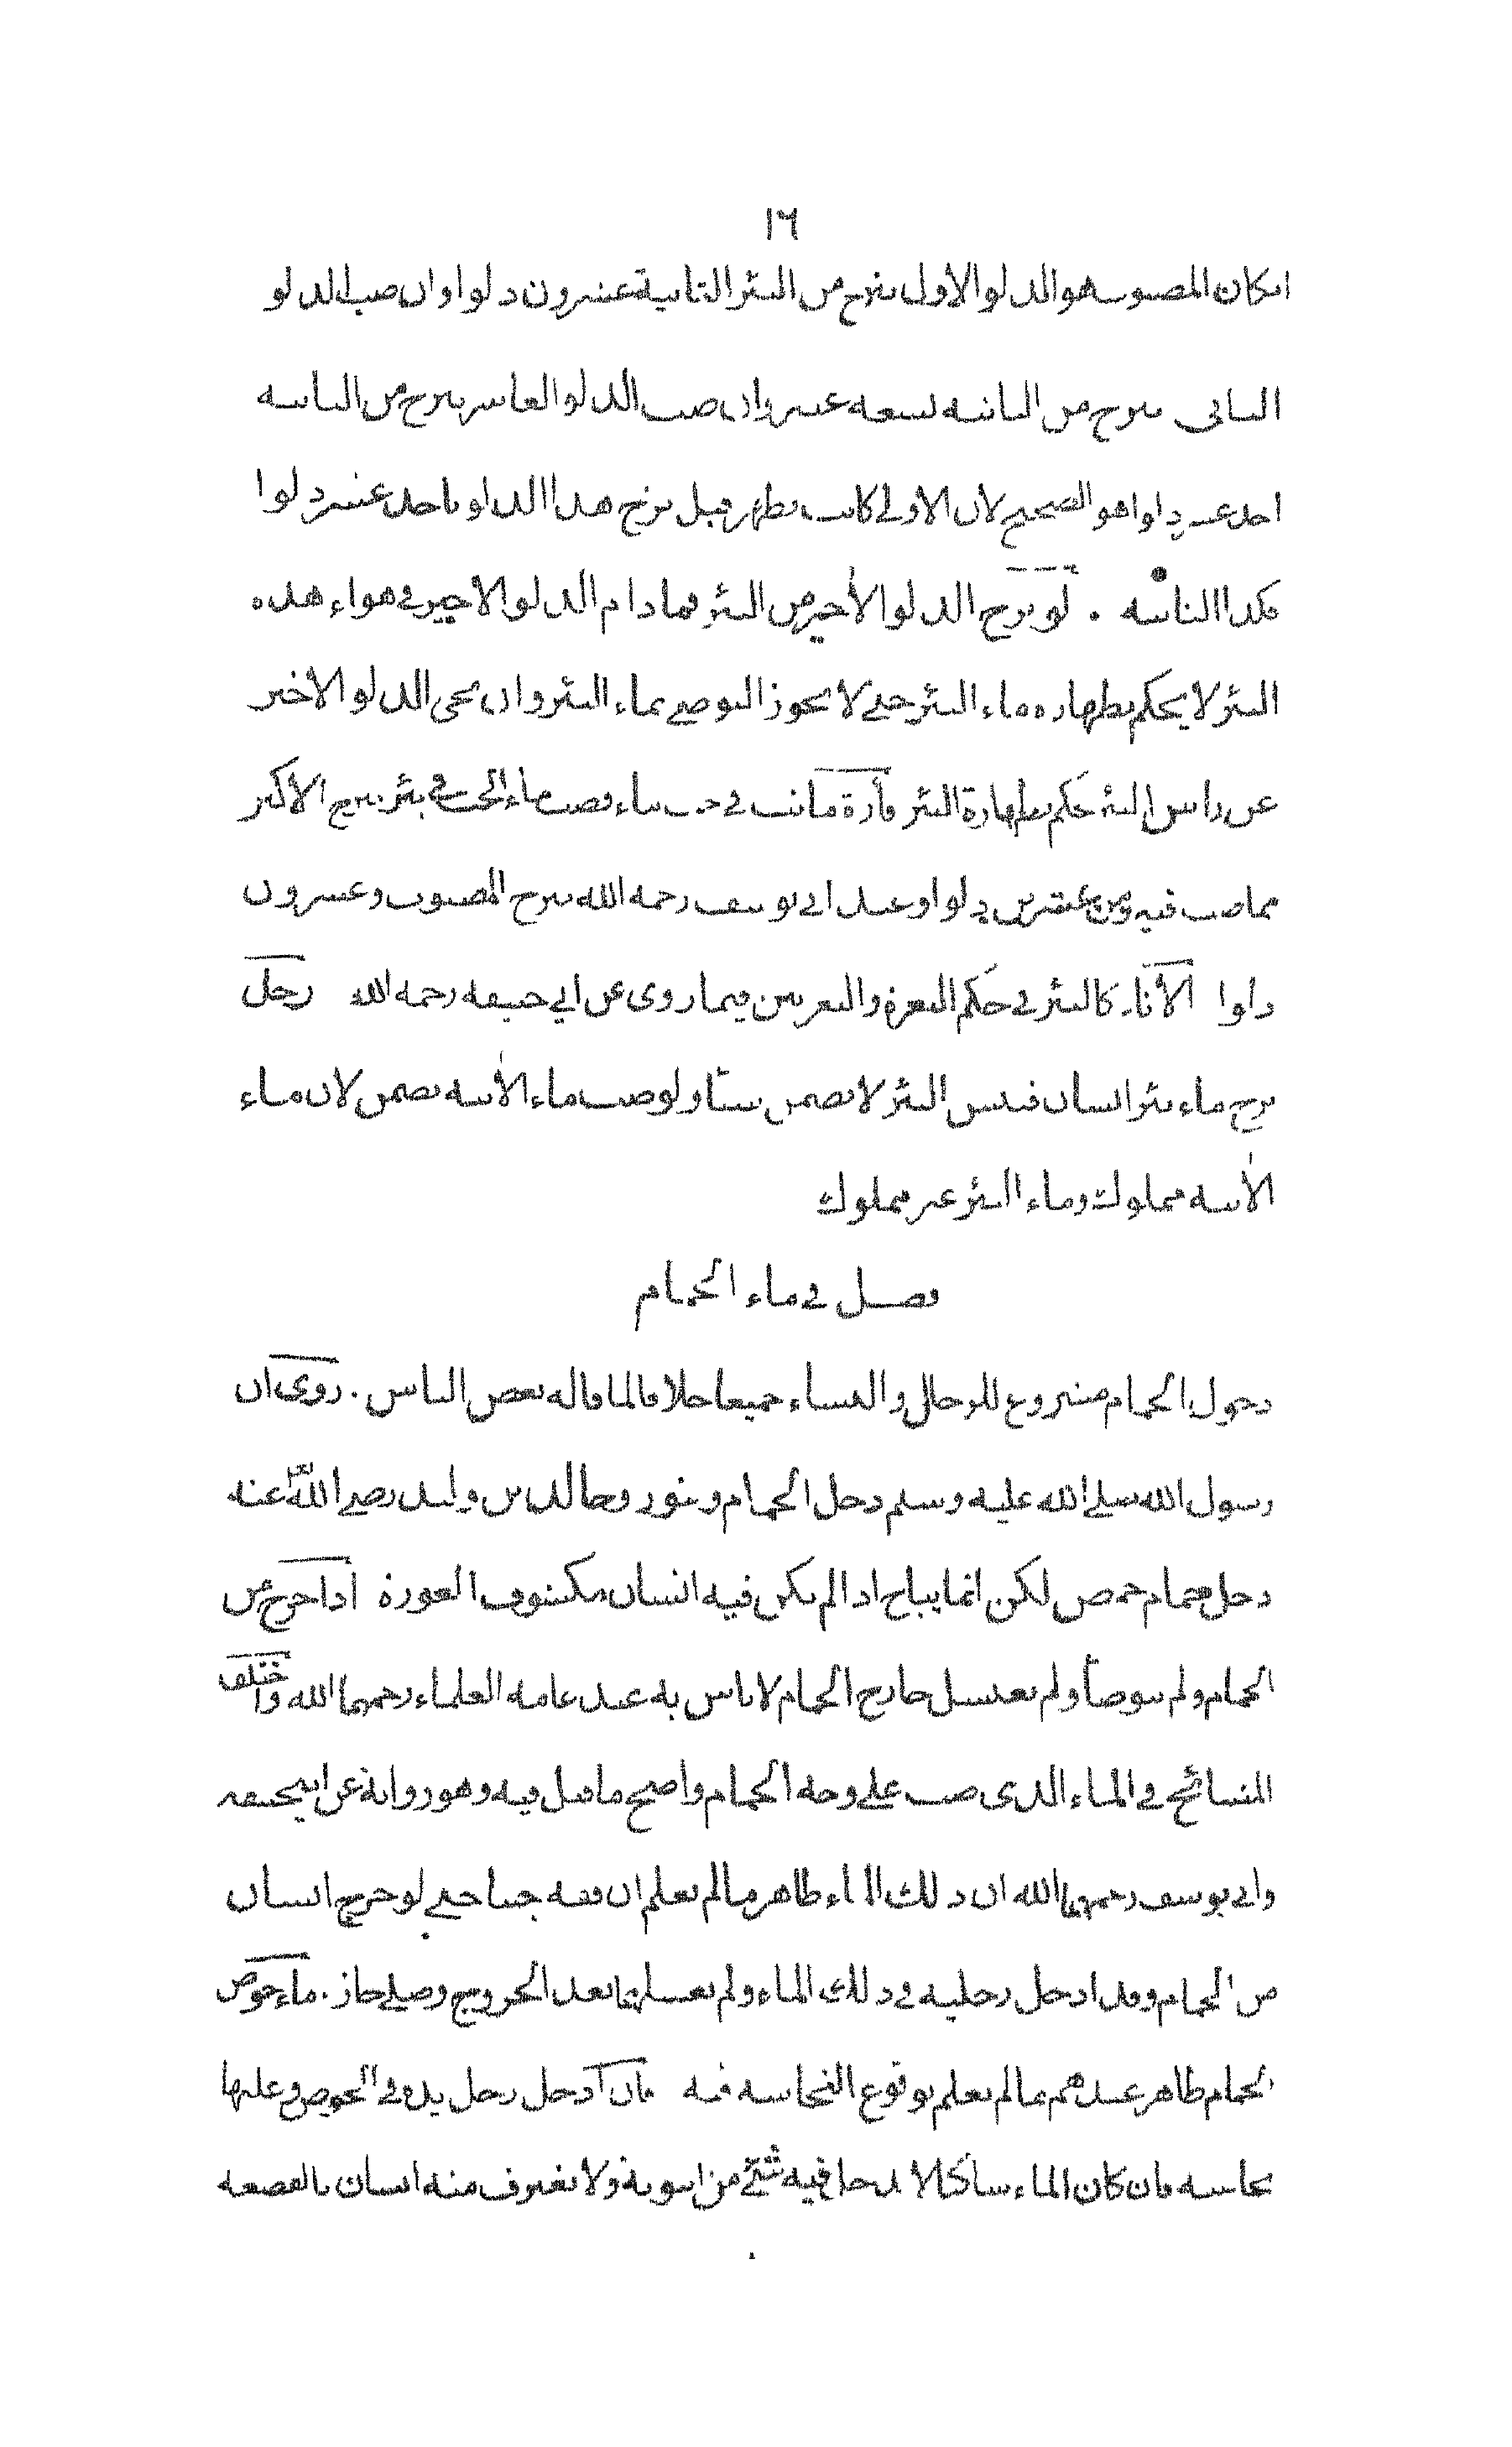 ١٦
ان كان المصبوب هو الدلو الاول ينزح من البئر الثانية عشرون دلوا وان صب الدلو
الثاني ينزح من الثانية تسعة عشر وان صب الدلو العاشر ينزح من الثانية
احد عشر دلوا هو الصحيح لان الاولى كانت تطهر قبل نزح هذا الدلو باحد عشر دلوا
فكذا الثانية . لو نزح الدلو الأخير من البئر فما دام الدلو الاخير في هواء هذه
البئر لا يحكم بطهارة ماء البئر حتى لا يجوز التوضي بماء البئر وان نحى الدلو الاخير
عن راس البئر حكم بطهارة البئر فأرة ماتت في حب ماء فصب ماء الحب في بئر ينزح الاكثر
مما صب فيه ومن عشرين دلوا وعند ابي يوسف رحمه الله ينزح المصبوب وعشرون
دلوا الأناء كالبئر في حكم البعرة والبعرتين فيما روى عن ابي حنيفة رحمه الله رجل
نزح ماء بئر انسان فيبس البئر لا يضمن شيئا ولو صب ماء الأنية يضمن لان ماء
الأنية مملوك وماء البئر غير مملوك
فصل في ماء الحمام
دخول الحمام مشروع للرجال والنساء جميعا خلافا لما قاله بعض الناس . روى ان
رسول الله صلى الله عليه وسلم دخل الحمام وتنور وخالد بن وليد رضي الله عنه
دخل حمام حمص لكن انما يباح اذا لم يكن فيه انسان مكشوف العورة اذا خرج من
الحمام ولم يتوضأ ولم يغتسل خارج الحمام لا باس به عند عامة العلماء رحمهما الله واختلف
المشائخ في الماء الذي صب على وجه الحمام واصح ما قيل فيه وهو رواية عن ابيحنيفه
وابي يوسف رحمهما الله ان ذلك الماء طاهر ما لم يعلم ان فيه خبثا حتى لو خرج انسان
من الحمام وقد ادخل رجليه في ذلك الماء ولم يغسلهما بعد الخروج وصلى جاز . ماء حوض
الحمام طاهر عندهم ما لم يعلم بوقوع النجاسة فيه فان ادخل رجل يده في الحوض وعليها
نجاسة فان كان الماء ساكنا لا يدخل فيه شئ من انبوبة ولا يغترف منه انسان بالقصعة